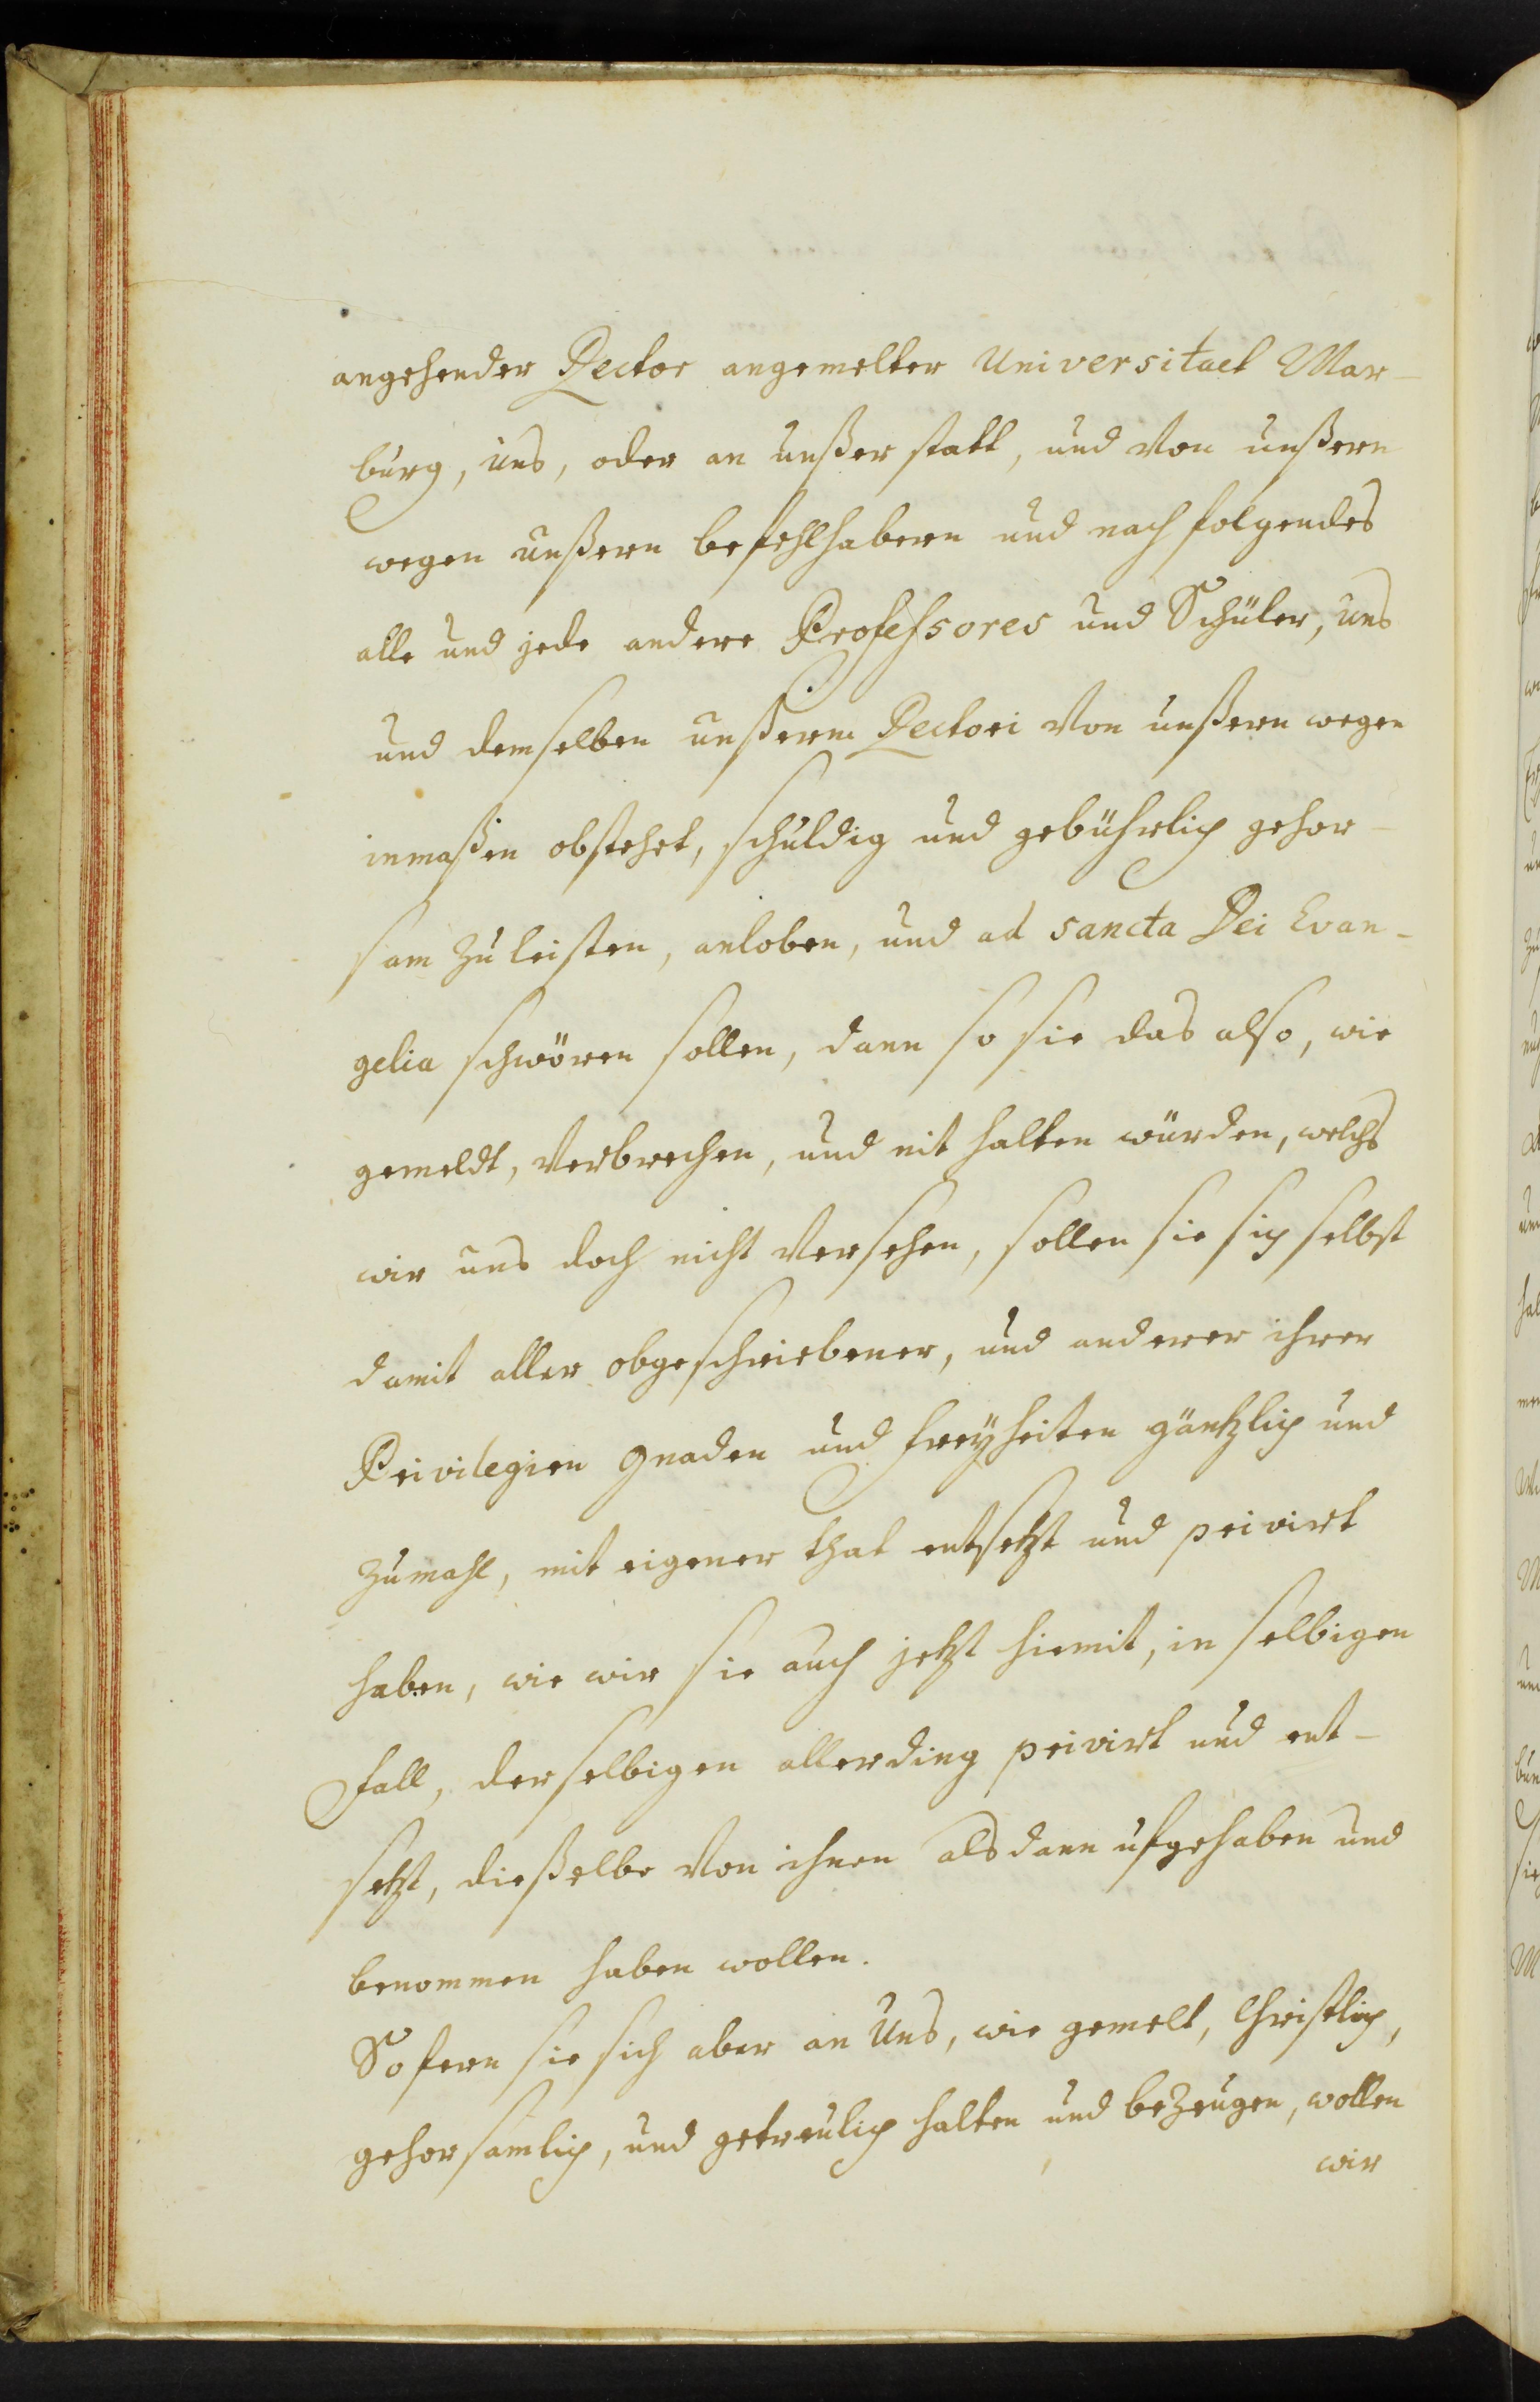 angehender Rector angemelter Universitaet Mar-
burg, uns, oder an unßer statt, und von unßern
wegen unßern befehlhabern und nach folgendes
alle und jede andere Professores und Schüler, uns
und demselben unßerm Rectori von unßern wegen
inmaßen obstehet, schuldig und gebührlich gehor-
sam zu leisten, anloben, und ad sancta Dei Evan-
gelia schwören sollen, dann so sie das also, wie
gemeldt, verbrechen, und nit halten würden, welchs
wir uns doch nicht versehen, sollen sie sich selbst
damit aller obgeschriebener, und anderer ihrer
Privilegien gnaden und freyheiten gäntzlich und
zumahl, mit eigener that entsetzt und privirt
haben, wie wir sie auch jetzt hiemit, in selbigen
fall, derselbigen allerding privirt und ent-
setzt, dießelbe von ihnen alsdann ufgehaben und
benommen haben wollen.
Sofern sie sich aber an Uns, wie gemelt, Christlich,
gehorsamlich, und getreulich halten und bezeugen, wollen
wir